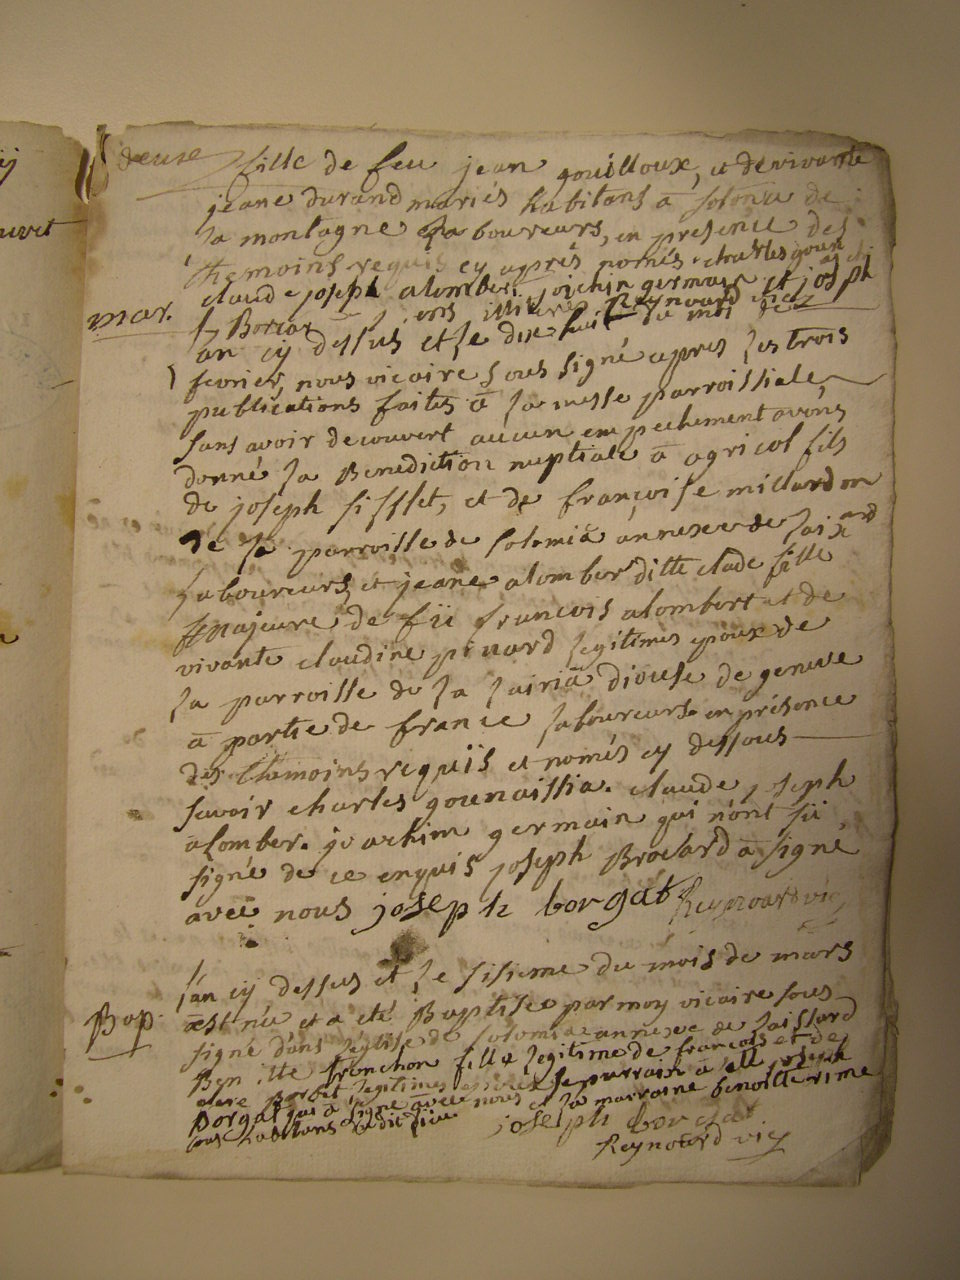 fille de feu jean gouilloux, et de vivante
jeane durand mariés habitans a solomia de
la montagne laboureurs, en presence des
themoins requis cy après només charles gounai
claude joseph alomber joichin germain et joseph
Reynoard vic
mar.
an cy dessus et le dix huit du moi de
fevrier, nous vicaire sous signé apres les trois
publications faites a la messe parroissiale,
sans avoir decouvert aucun empechement avons
donné la Benediction nuptiale a agricol fils
de joseph sifflet, et de françoise millardon
de la parroisse de solomia annexe de saixard
laboureurs, et jeane alomber ditte clade fille
majeure de fü francois alombert et de
vivante claudine pinard legitimes epoux de
la parroisse de la lairia diouse de geneve
a partie de france laboureurs. en présence
des themoins requis et només cy dessous
savoir charles gounaissia. claude joseph
alomber. joachim germain qui nont sü
signé de ce enquis joseph Brocard a signé
avec nous joseph borgat Reynoard vic
lan cy dessus et le sisieme du mois de mars
Bap.
est née et a eté Baptisée par moy vicaire sous
signé dans leglise de solomiac annexe de saissard
Benoitte tronchon fille legitime de francois et de
clere Borbet legitimes le parrain a eté joseph
Borgat qui a signé avec nous et la marraine benoitte rime
tous habitans dudit lieu
joseph borgat
Reynoard vic